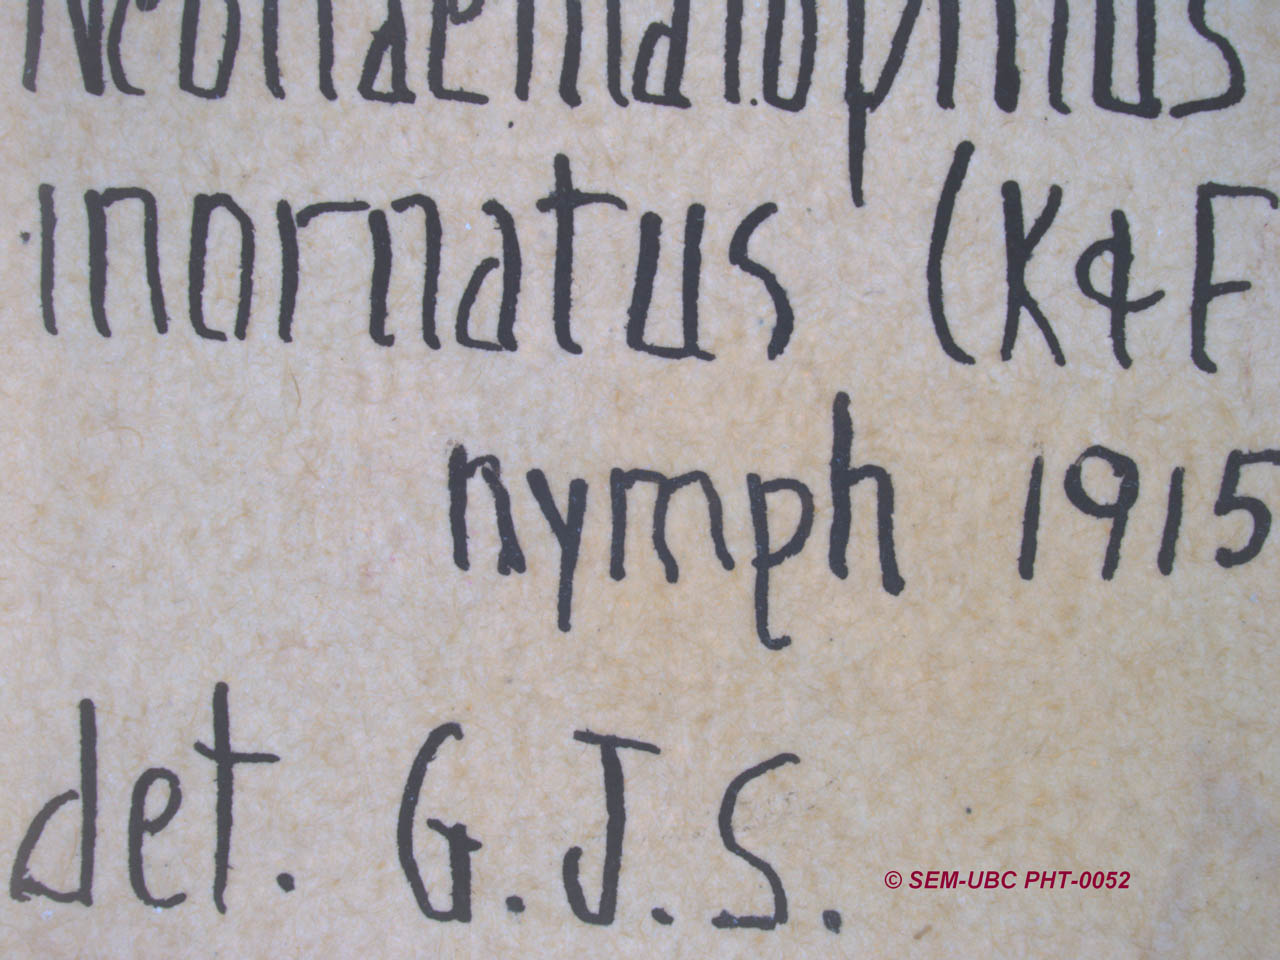 Neohaematopinus
inornatus (K&F
nymph 1915
det. G.J.S.
© SEM-UBC PHT-0052